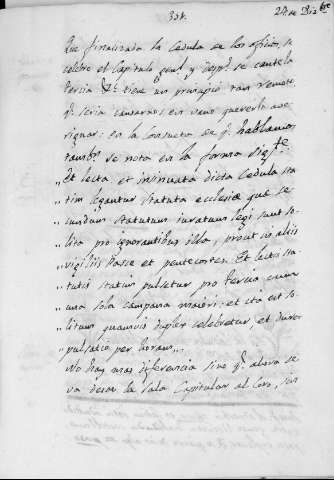 334. 24 de Dizbre
Que finalizada la Cedula de los oficios, se
celebre el Capitulo genl. y desps. se cante la
tercia &c. tiene un principio tan remoto
qe. seria cansarnos en vano quererlo ave-
riguar: en la Consueta de qe. hablamos
tambn. se nota en la forma sigte.
„ Et lecta et insinuata dicta Cedula sta-
„ tim legantur statuta ecclesiæ que se
„ cundum statutum iuratum legi sunt so-
„ lita pro ignorantibus illa, prout in aliis
„ vigiliis Pasce et pentecostes. Et lectis sta
„ tutis statim pulsetur pro tercia cum
„ una sola campana maiori: et ita est so-
„ litum quamvis duplex celebretur et duret
„ pulsatio per horam...
No hay mas diferencia sino qe. ahora se
va desde la Sala Capitular al Coro, sin